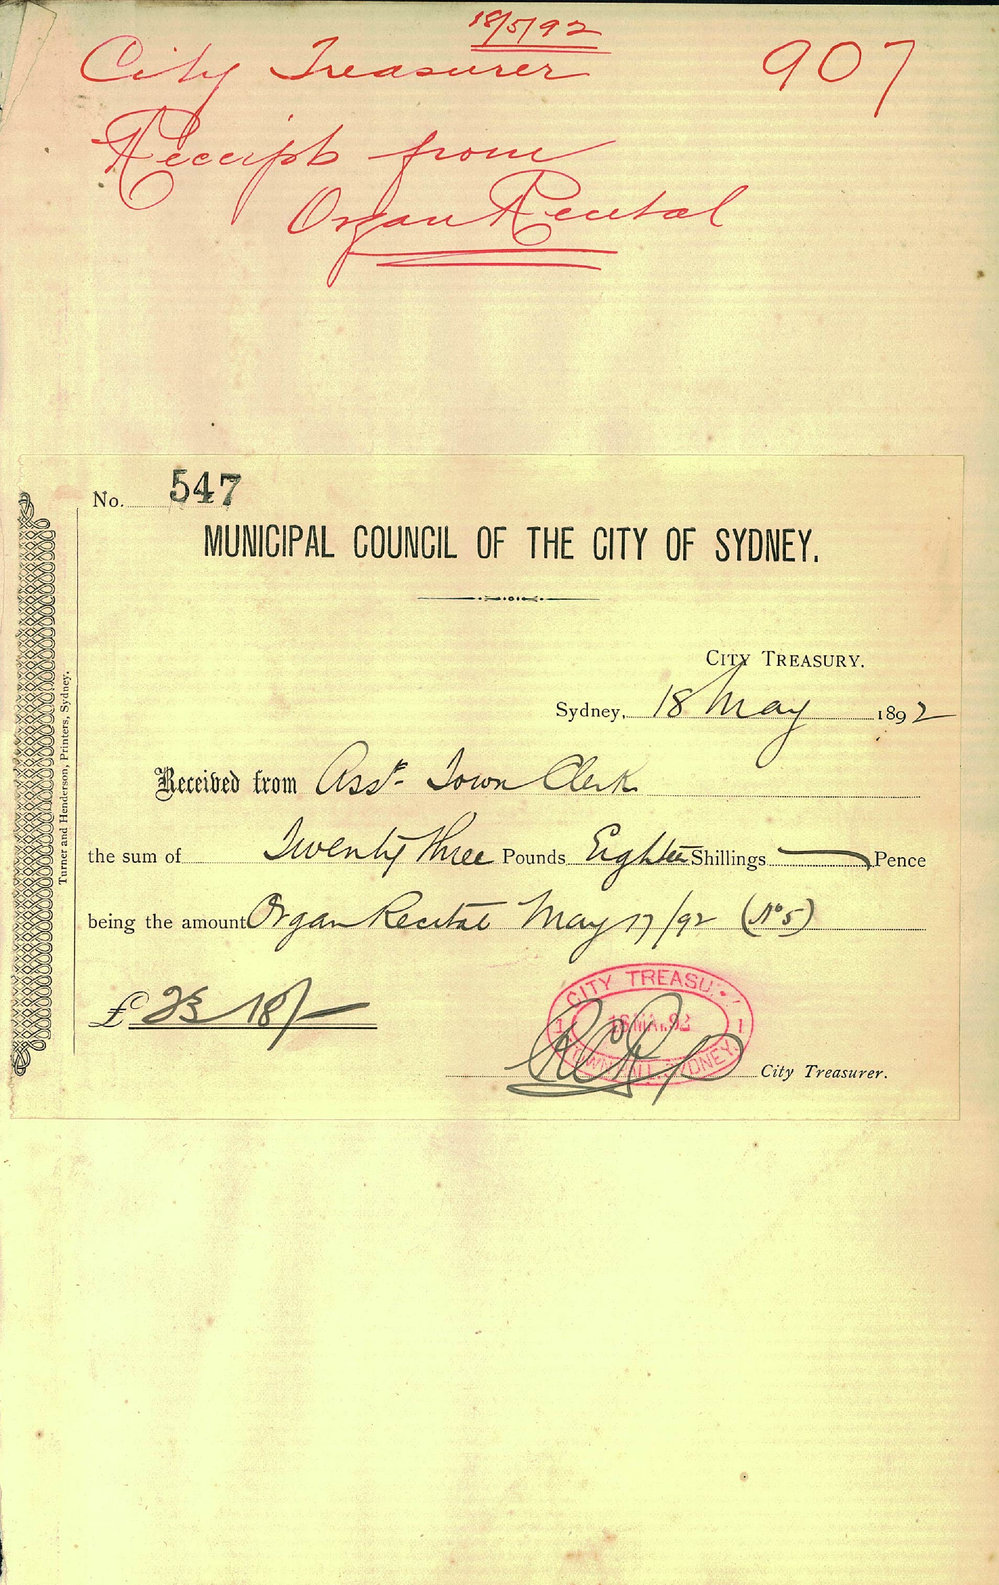 18/5/92
City Treasurer 907
Receipts from
Organ Recital
No. 547
MUNICIPAL COUNCIL OF THE CITY OF SYDNEY.
CITY TREASURY.
Sydney, 18 May 1892
Received from Asst. Town Clerk
the sum of Twenty three Pounds Eighteen Shillings — Pence
being the amount Organ Recital May 17/92 (No 5)
£23.18/-
CITY TREASU
18 MA .92
1 1
TOWN HALL. SYDNEY.
City Treasurer.
Turner and Henderson, Printers, Sydney.